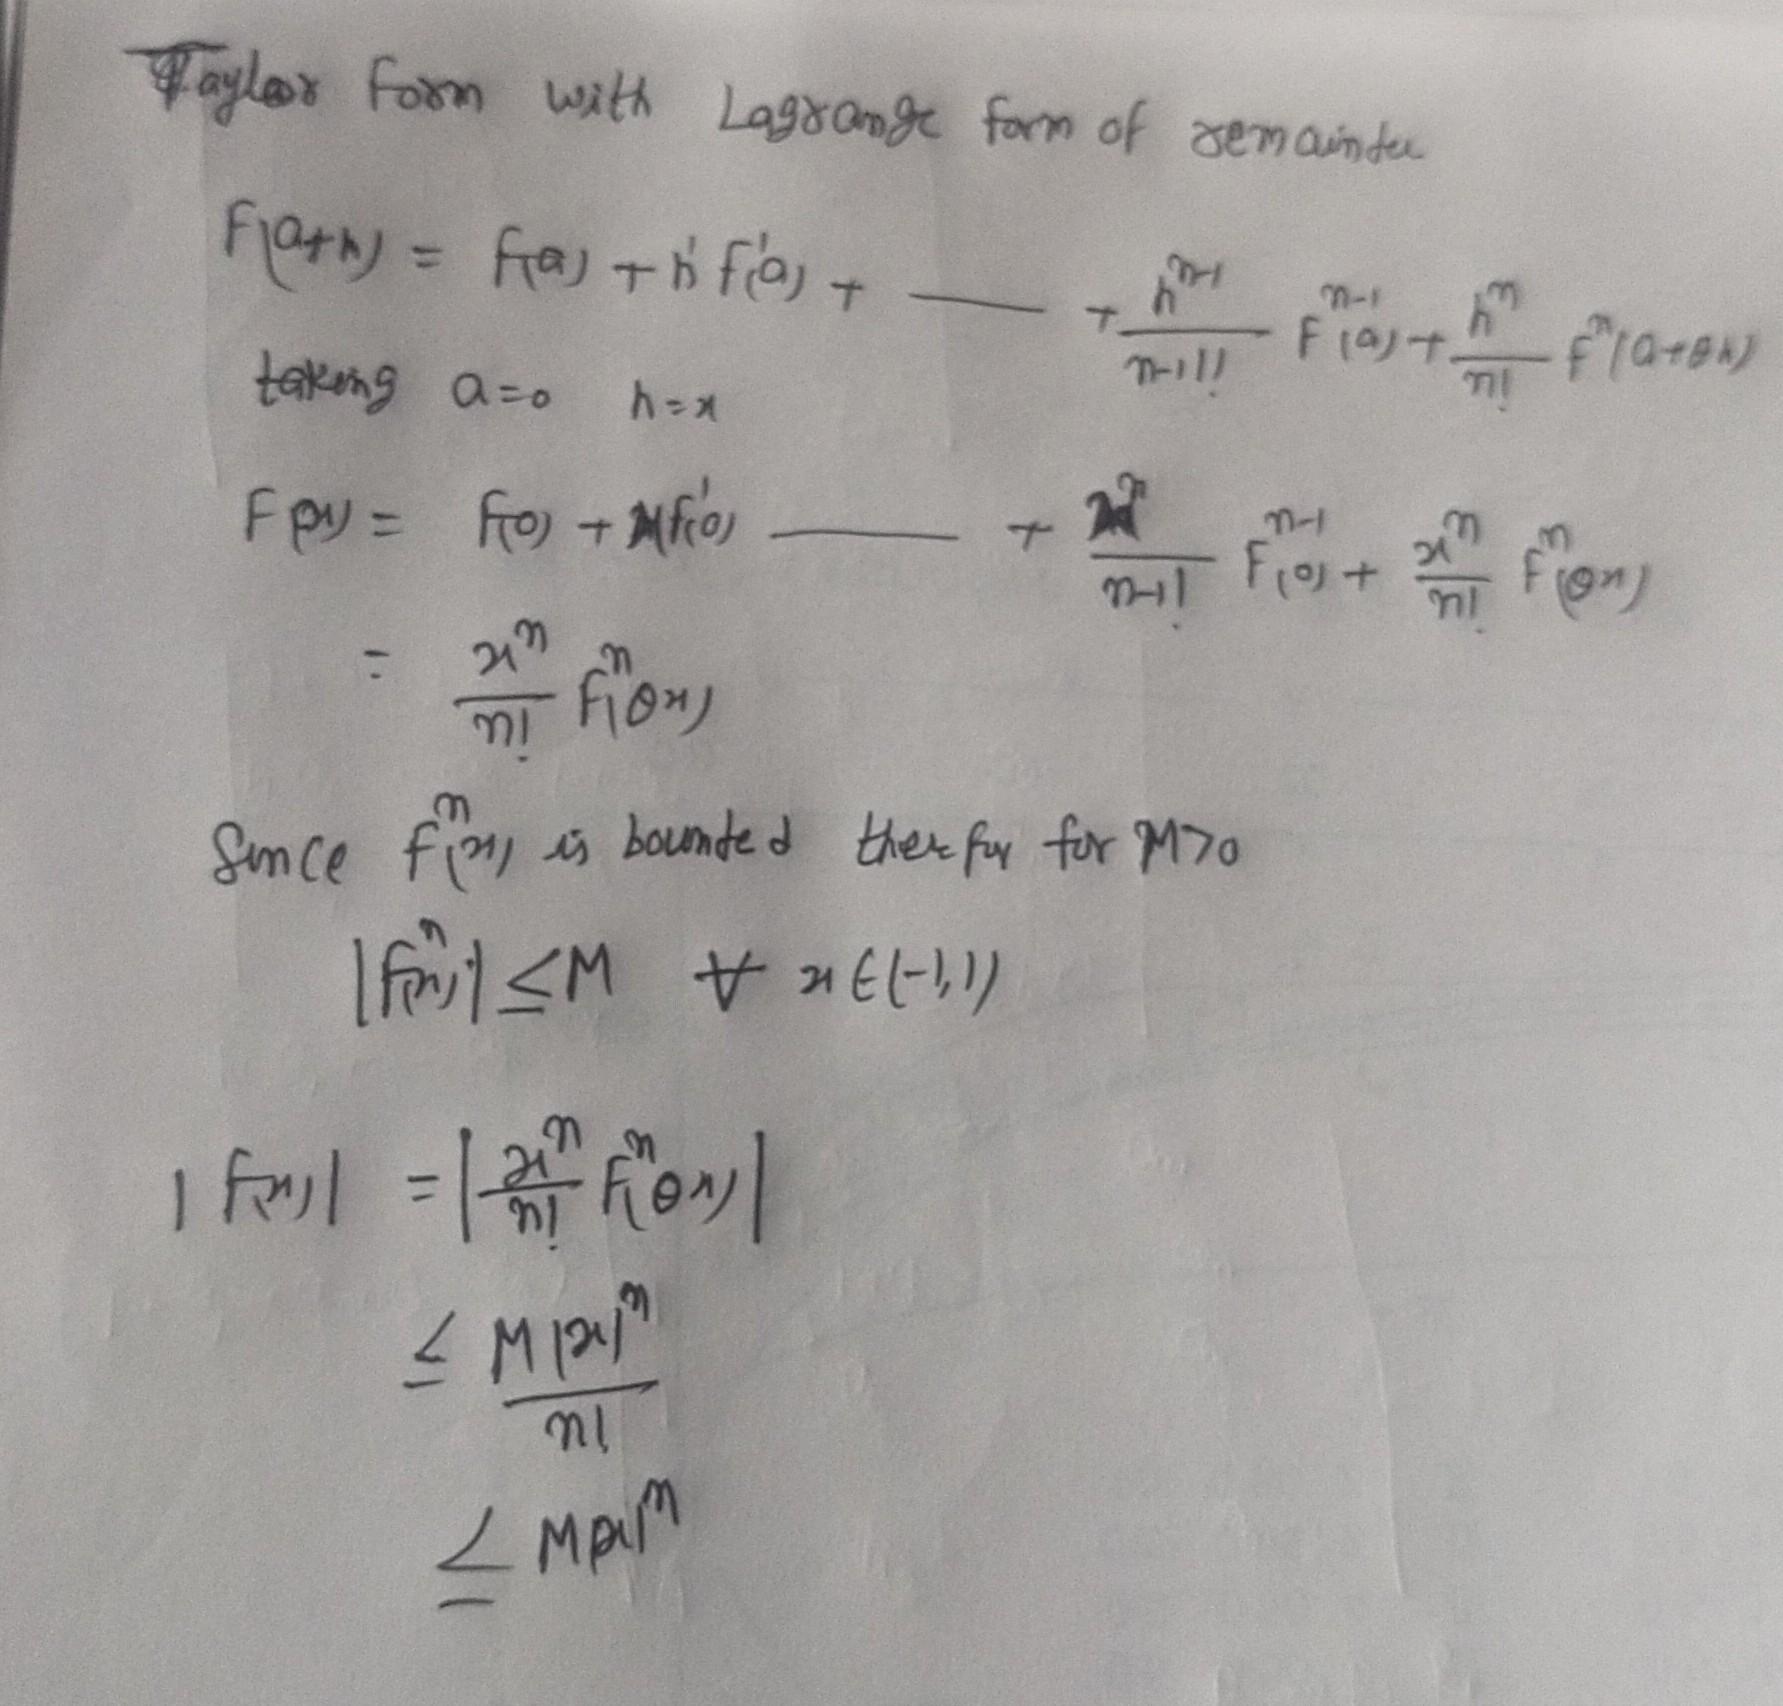 Taylor Form with Lagrange form of remainder
F(a+h) = f(a) + h f'(a) + ——— + h^{n-1}/n-1!! F^{n-1}(a) + h^n/n! F^n(a+θh)
taking a=0 h=x
F(x) = f(0) + x f'(0) ——— + x^n/n-1! F^{n-1}(0) + x^n/n! F^n(θx)
= x^n/n! F^n(θx)
Since F^n(x) is bounded therefor for M>0
|F^n(x)| ≤ M ∀ x ∈ (-1,1)
|f(x)| = |x^n/n! F^n(θx)|
≤ M|x|^n/n!
≤ M|x|^n